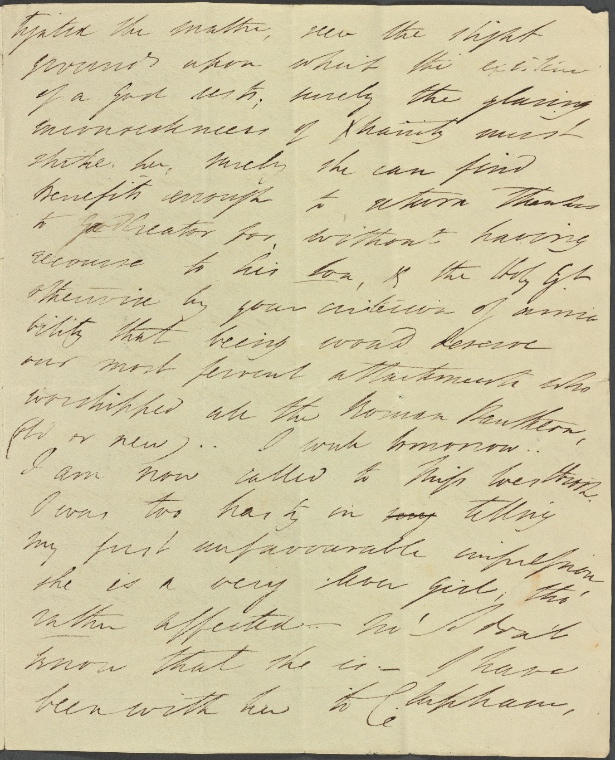 tigated the matter, seen the slight
grounds upon which the existence
of a God rests; surely the glaring
inconsistencies of Xtianity must
strike her, surely she can find
benefits enough to return thanks
to God Creator for, without having
recourse to his Son, & the Holy Gt
otherwise by your criterion of amia
bility that being would deserve
our most fervent attachments who
worshipped all the Roman Pantheon,
(old or new) .. I write tomorrow ..
I am now called to Miss Westbrook.
I was too hasty in my telling
my first unfavourable impression
she is a very clever girl, tho'
rather affected — no! I don't
know that she is — I have
been with her to Clapham,